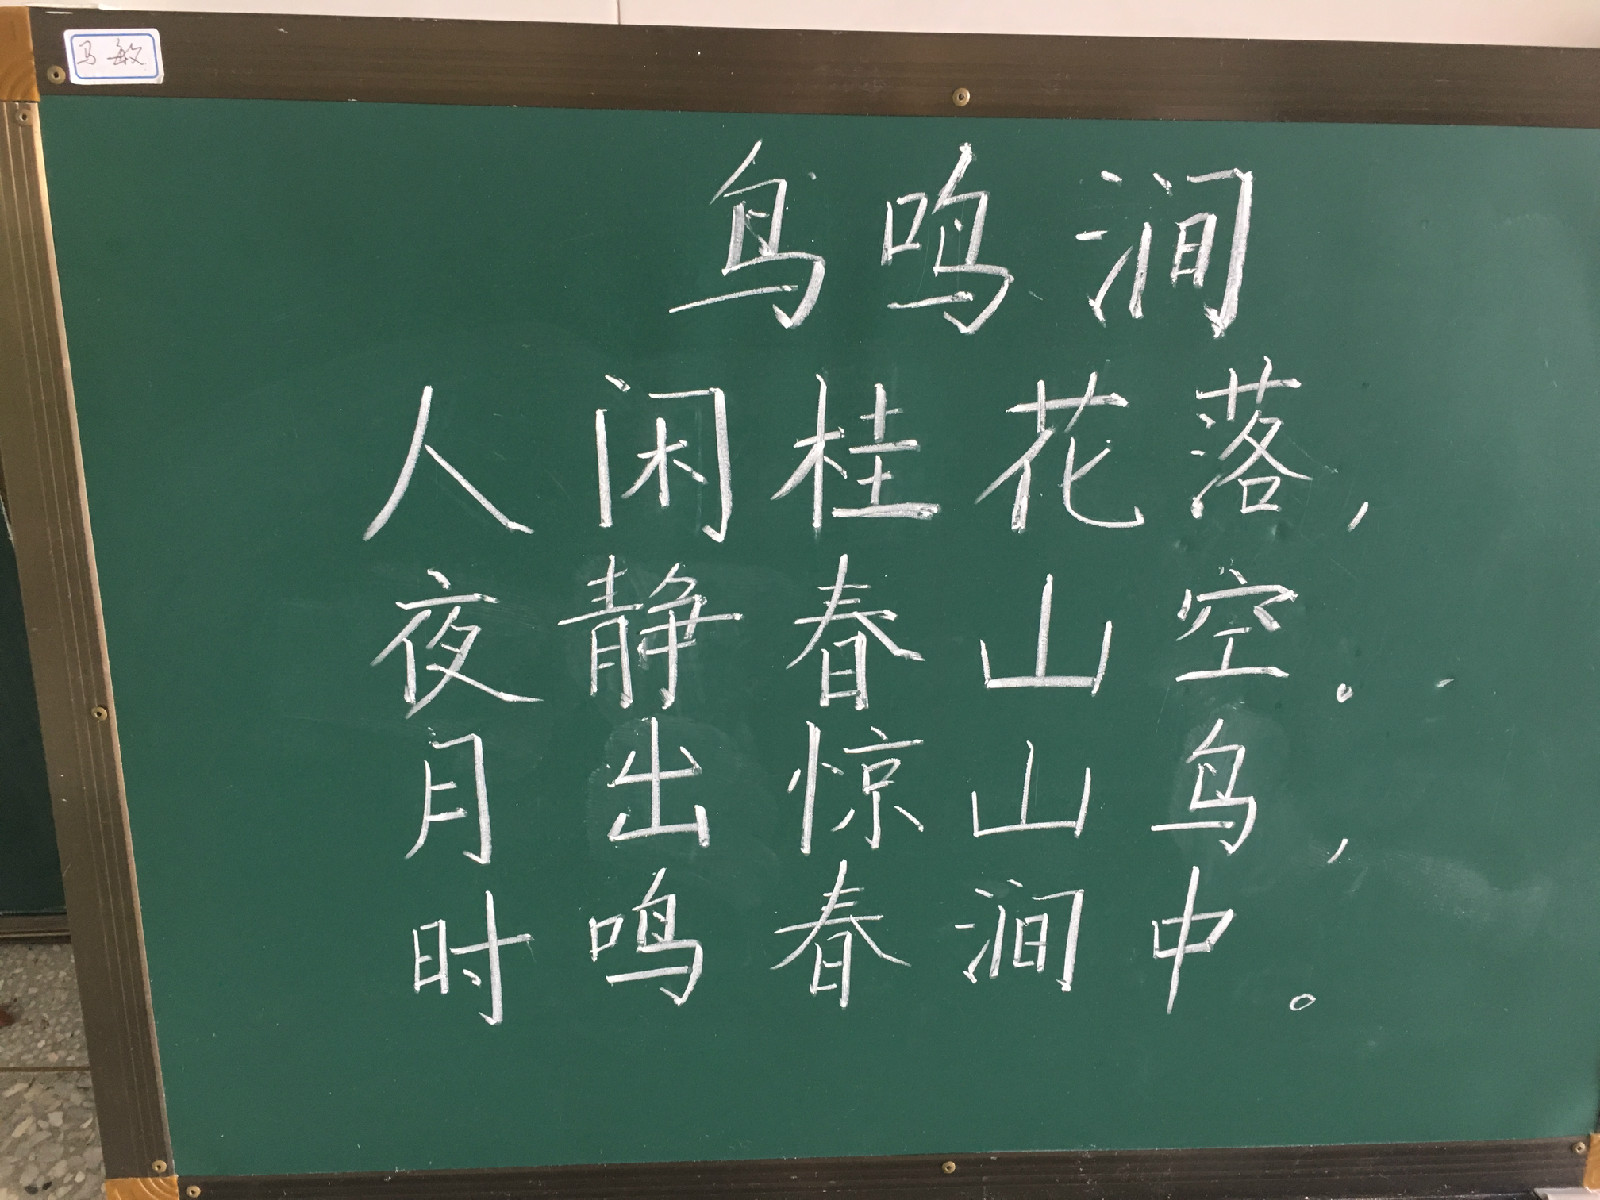 马敏
鸟鸣涧
人闲桂花落，
夜静春山空。
月出惊山鸟，
时鸣春涧中。